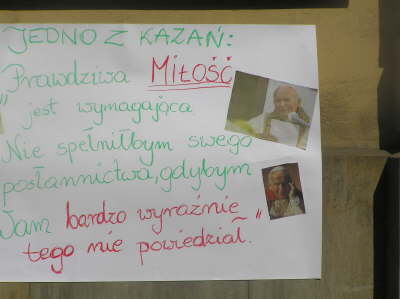 JEDNO Z KAZAŃ:
Prawdziwa MIŁOŚĆ
" jest wymagająca
Nie spełniłbym swego
posłannictwa, gdybym
Wam bardzo wyraźnie
tego nie powiedział."